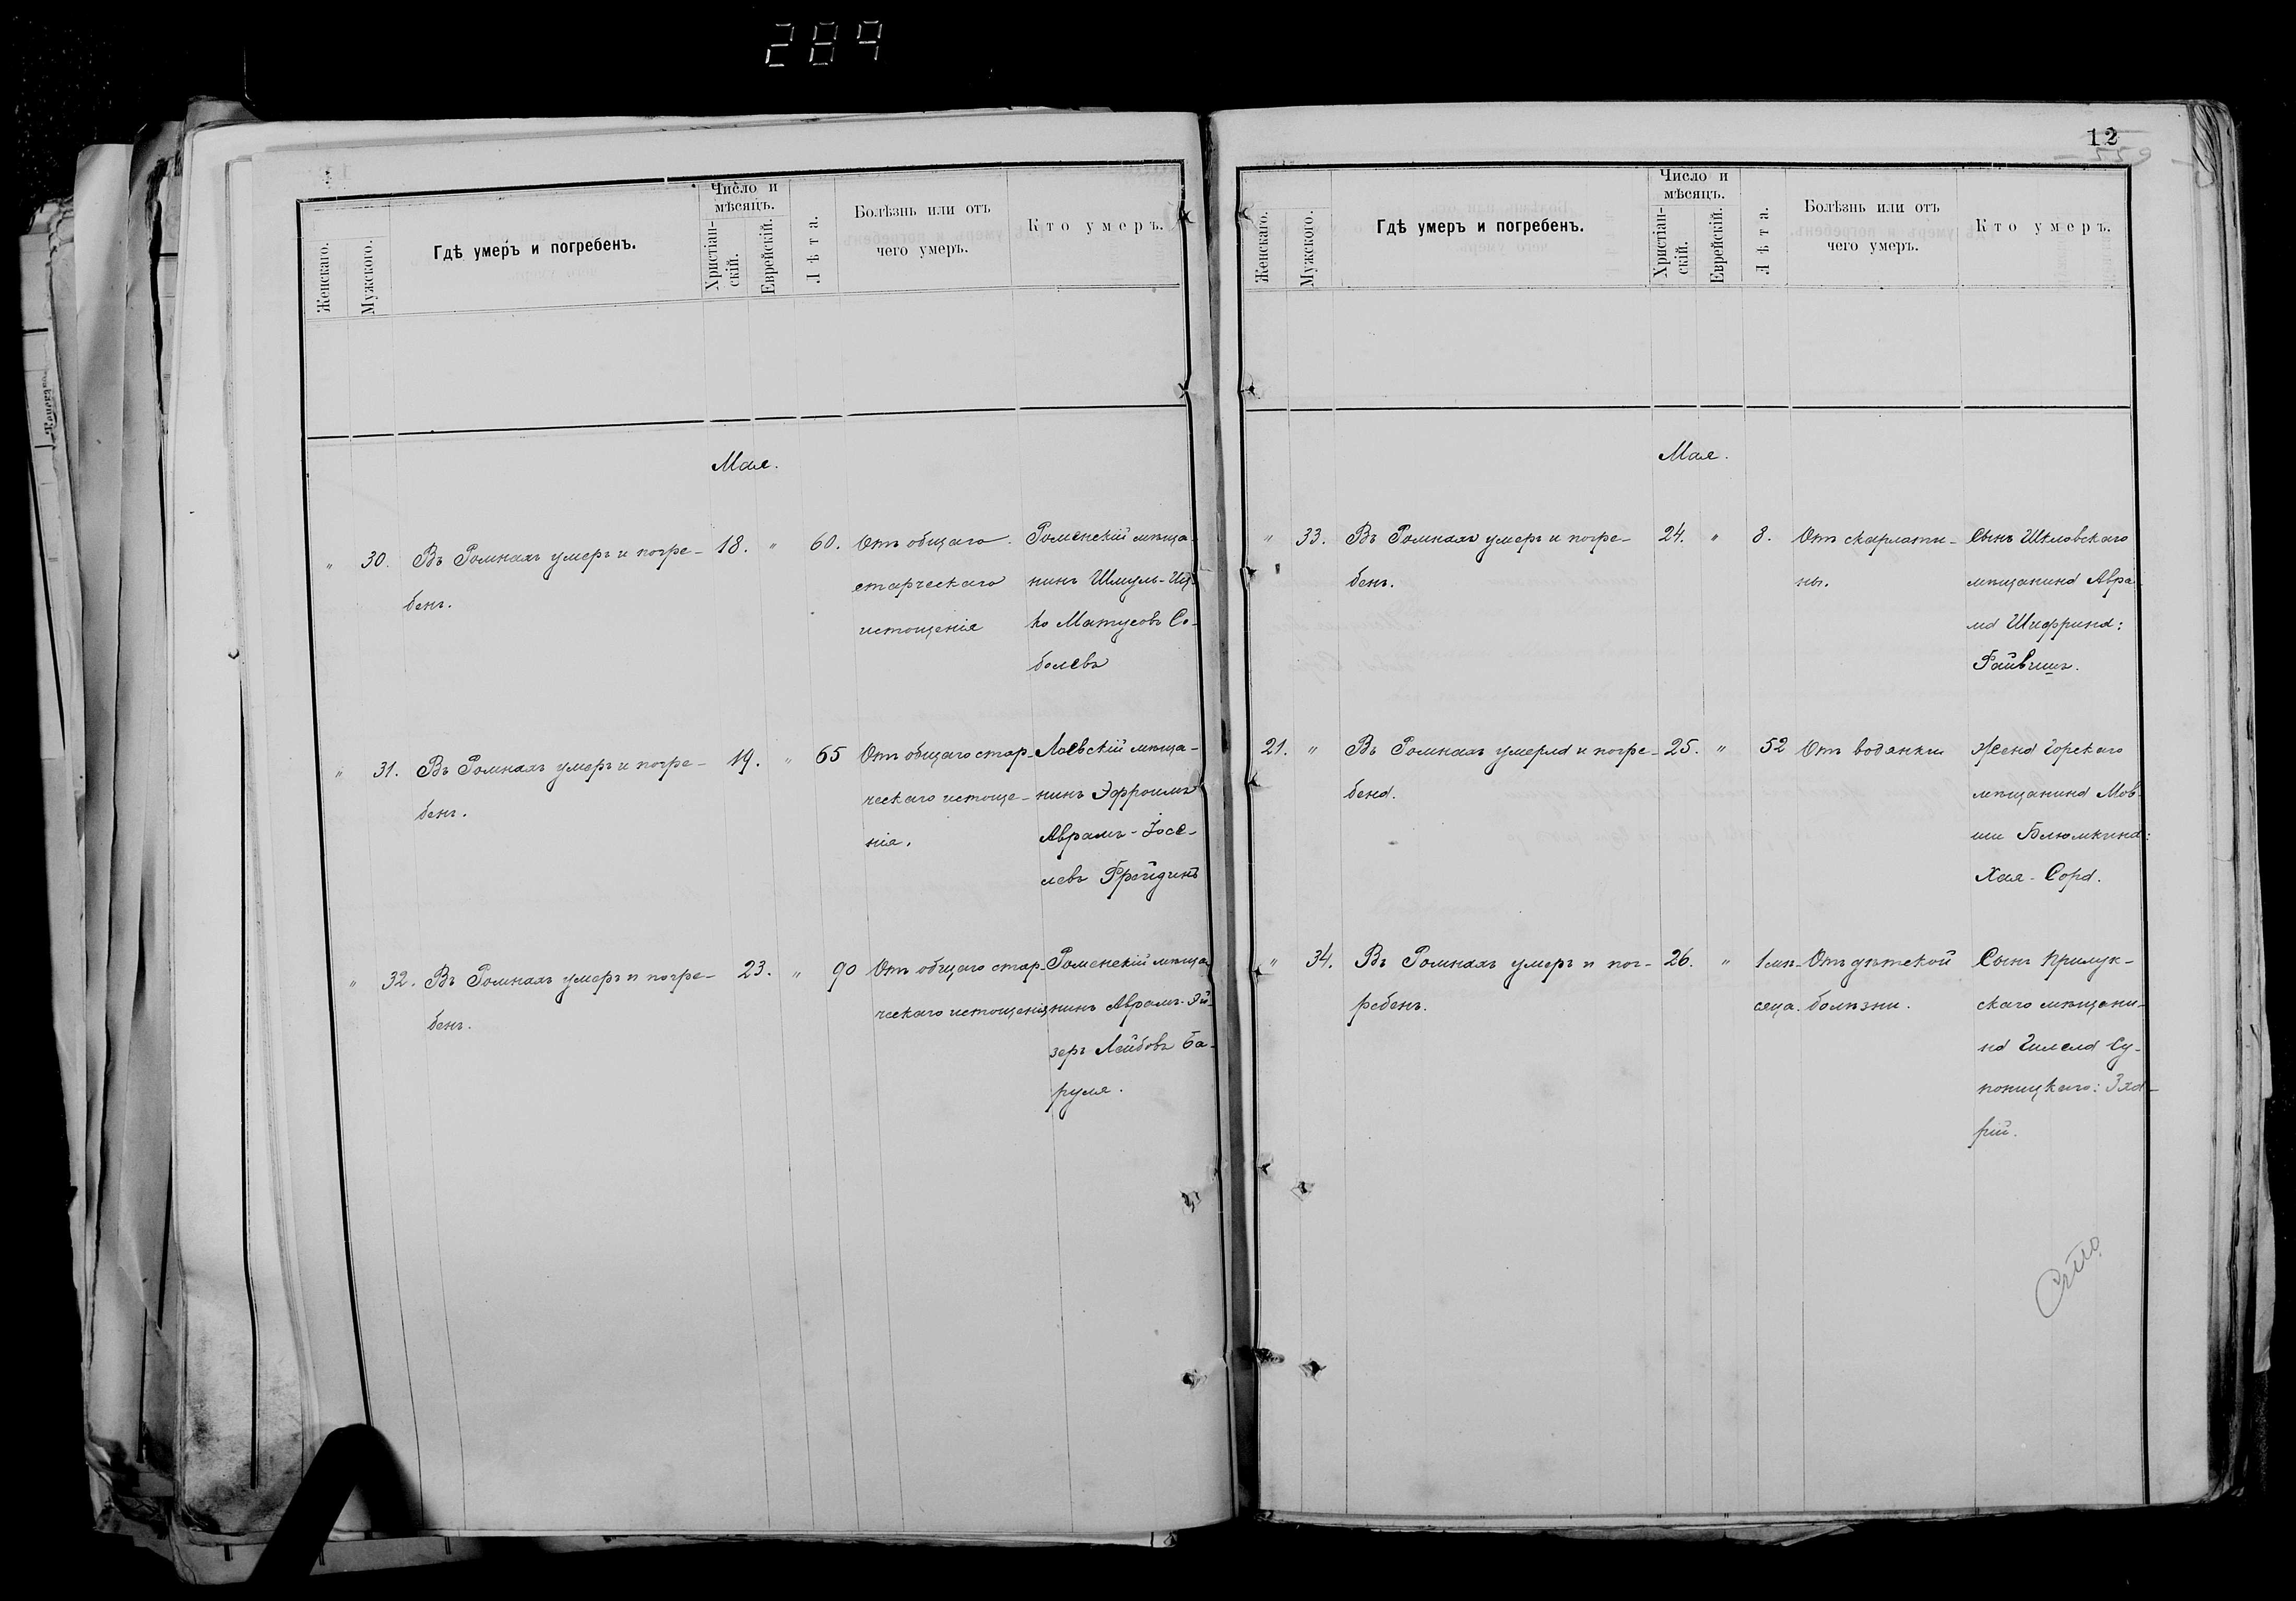 289
Женскаго.
Мужского.
Гдѣ умеръ и погребенъ.
Число и
мѣсяцъ.
Христіан-
скій.
Еврейскій.
Лѣта.
Болѣзнь или отъ
чего умеръ.
Кто умеръ.
Мая.
" 30. Въ Ромнахъ умеръ и погре-
бенъ.
18. " 60.
Отъ общаго
старческаго
истощенія
Роменскій мѣща-
нинъ Шмуль-Иц-
ко Матусовъ Со-
болевъ
" 31. Въ Ромнахъ умеръ и погре-
бенъ.
19. " 65
Отъ общаго стар-
ческаго истоще-
нія.
Лоевскій мѣща-
нинъ Эфроимъ
Аврамъ-Іосе-
левъ Фрейдинъ
" 32. Въ Ромнахъ умеръ и погре-
бенъ.
23. " 90
Отъ общаго стар-
ческаго истощенія
Роменскій мѣща-
нинъ Аврамъ-Эй-
зеръ Лейбовъ Ба-
руля.
12
Женскаго.
Мужского.
Гдѣ умеръ и погребенъ.
Число и
мѣсяцъ.
Христіан-
скій.
Еврейскій.
Лѣта.
Болѣзнь или отъ
чего умеръ.
Кто умеръ.
Мая.
" 33. Въ Ромнахъ умеръ и погре-
бенъ.
24. " 8.
Отъ скарлати-
ны.
Сынъ Шкловскаго
мѣщанина Авра-
ма Шифрина:
Файвишъ.
21. " Въ Ромнахъ умерла и погре-
бена.
25. " 52
Отъ водянки
Жена Горскаго
мѣщанина Мов-
ши Блюмкина:
Хая-Сора.
" 34. Въ Ромнахъ умеръ и пог-
ребенъ.
26. " 1 мѣ-
сяца.
Отъ дѣтской
болѣзни.
Сынъ Прилук-
скаго мѣщани-
на Гилела Су-
поницкаго: Зха-
рій.